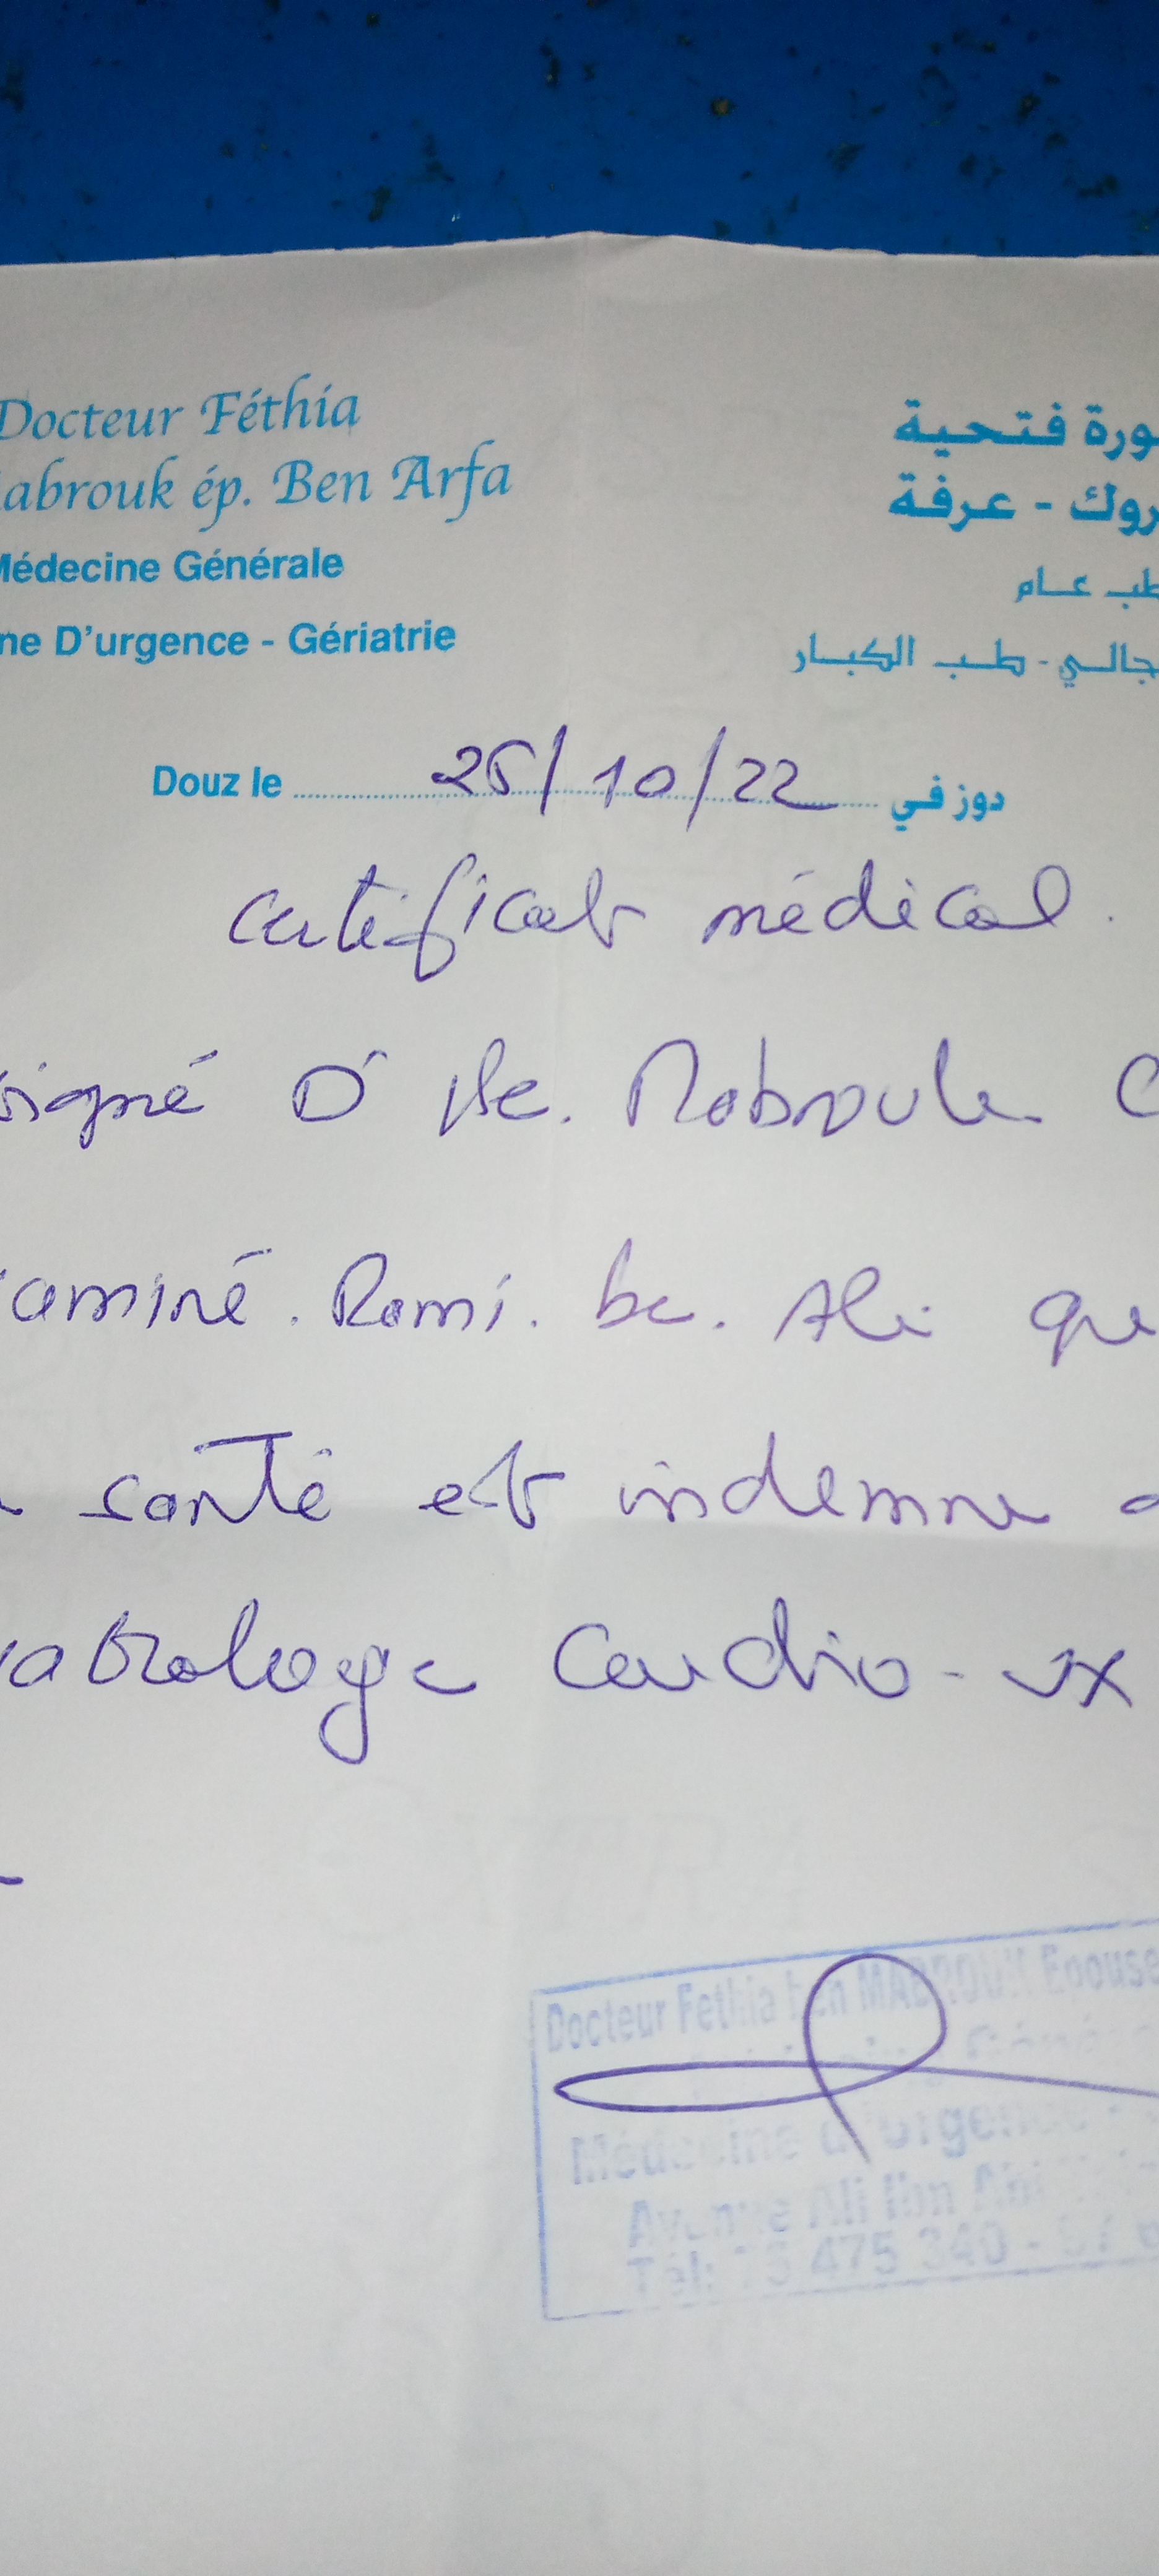 Docteur Féthia
abrouk ép. Ben Arfa
Médecine Générale
ne D'urgence - Gériatrie
ورة فتحية
روك - عرفة
طب عام
جالي - طب الكبار
Douz le 25/10/22 دوز في
certificat médical.
signé Dr Be. Mabrouk C
aminé. Rami. be. Ali que
santé est indemne
Cardio-vx
Docteur Fethia ben MABROUK Epouse
Médecine d'Urgence
Avenue Ali Ibn Abi
Tél: 75 475 340 - 97